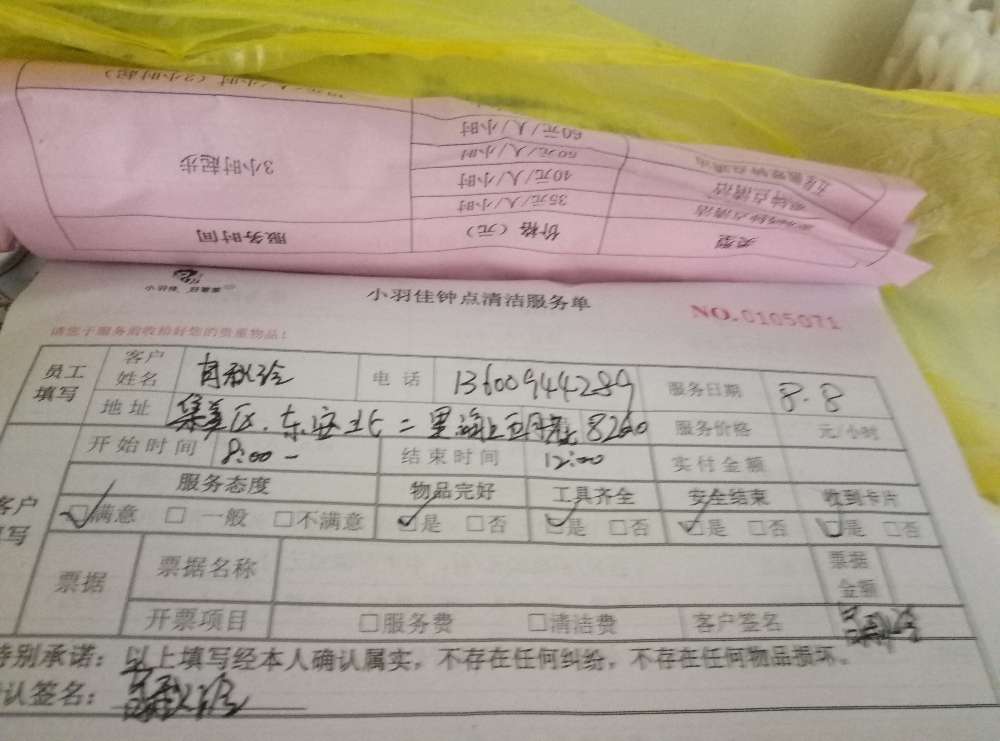 3小时起步
60元/人/小时
50元/人/小时
40元/人/小时
35元/人/小时
钟点清洁
类型 价格（元） 服务时间
小羽佳 好管家
小羽佳钟点清洁服务单
NO.0105071
请您于服务前收拾好您的贵重物品！
员工填写 客户姓名 电话 13600944289 服务日期 8.8
地址 集美区.东安北二里海上五月花8260 服务价格 元/小时
开始时间 8:00- 结束时间 12:00 实付金额
服务态度 物品完好 工具齐全 安全结束 收到卡片
客户填写 □满意 □一般 □不满意 □是 □否 □是 □否 □是 □否 □是 □否
票据 票据名称 票据金额
开票项目 □服务费 □清洁费 客户签名
特别承诺：以上填写经本人确认属实，不存在任何纠纷，不存在任何物品损坏。
确认签名：